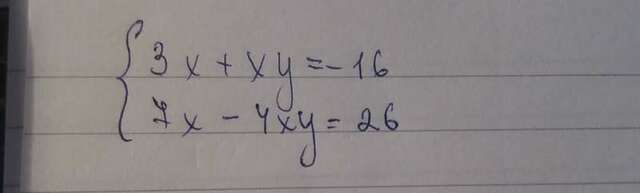 3x + xy = -16
7x - 4xy = 26